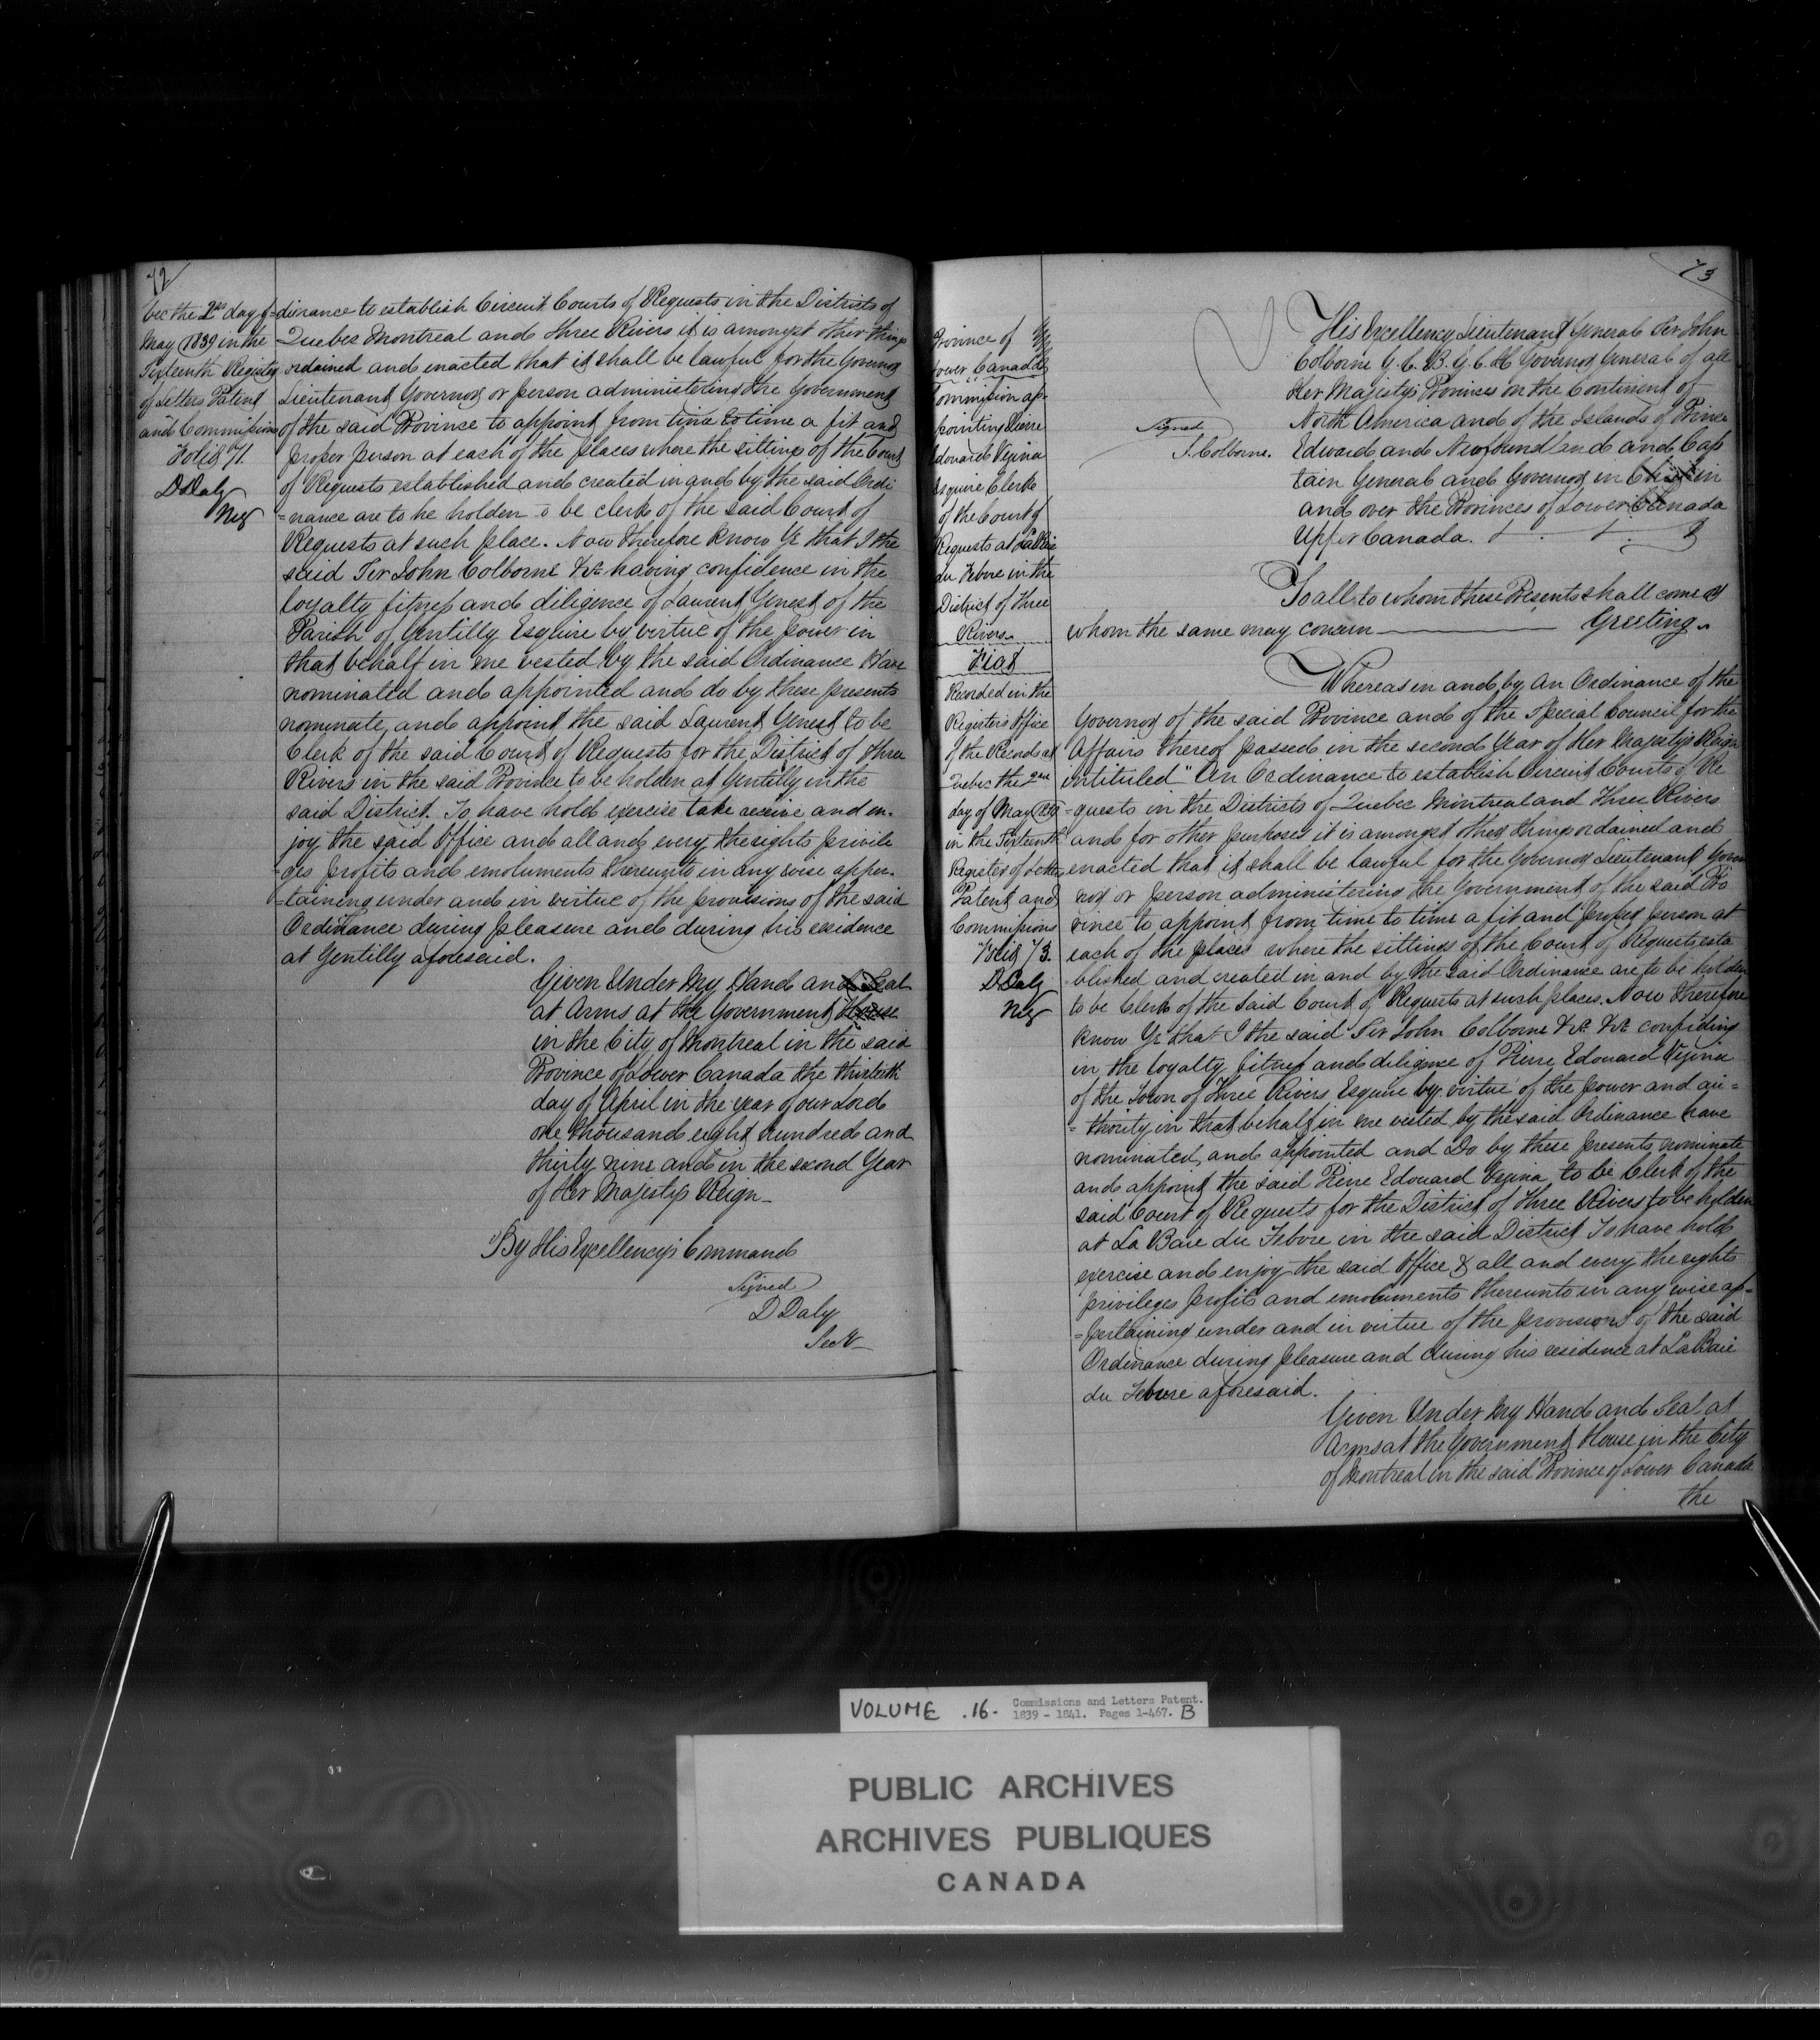 72
bec the 2nd day of
May 1839 in the
Sixteenth Register
of Letters Patent
and Commissions
Folio 71.
D Daly
Reg
=dinance to establish Circuit Courts of Requests in the Districts of
Quebec Montreal and Three Rivers it is amongst other things
ordained and enacted that it shall be lawful for the Governor
Lieutenant Governor or person administering the Government
of the said Province to appoint from time to time a fit and
proper person at each of the places where the sittings of the Court
of Requests established and created in and by the said Ordi
=nance are to be holden to be clerk of the said Court of
Requests at such place. Now therefore Know Ye that I the
said Sir John Colborne &c having confidence in the
loyalty fitness and diligence of Laurent Genest of the
Parish of Gentilly Esquire by virtue of the power in
that behalf in me vested by the said Ordinance Have
nominated and appointed and do by these presents
nominate and appoint the said Laurent Genest to be
Clerk of the said Court of Requests for the District of Three
Rivers in the said Province to be holden at Gentilly in the
said District. To have hold exercise take receive and en-
joy the said Office and all and every the rights privile
=ges profits and emoluments thereunto in any wise apper-
=taining under and in virtue of the provisions of the said
Ordinance during pleasure and during his residence
at Gentilly aforesaid.
Given Under my Hand and Seal
at Arms at the Government House
in the City of Montreal in the said
Province of Lower Canada the thirtieth
day of April in the year of our Lord
one thousand eight hundred and
thirty nine and in the second Year
of Her Majesty's Reign_
By His Excellency's Command
Signed
D Daly
Secy
73
Province of
Lower Canada
Commission ap-
pointing Pierre
Edouard Vezina
Esquire Clerk
of the Court of
Requests at La Baie
du Febvre in the
District of Three
Rivers.
Fiat
Recorded in the
Registers Office
of the Records at
Quebec the 2nd
day of May 1839
in the Sixteenth
Register of Letters
Patent and
Commissions
Folio 73.
D Daly
Reg
Signed
J. Colborne.
His Excellency Lieutenant General Sir John
Colborne G. C. B. G. C. H Governor General of all
Her Majesty's Provinces on the Continent of
North America and of the Islands of Prince
Edward and Newfoundland and Cap
tain General and Governor in Chief in
and over the Provinces of Lower Canada
Upper Canada.
To all to whom these Presents shall come or
whom the same may concern Greeting.
Whereas in and by An Ordinance of the
Governor of the said Province and of the Special Council for the
Affairs thereof passed in the second Year of Her Majesty's Reign
intituled "An Ordinance to establish Circuit Courts of Re
=quests in the Districts of Quebec Montreal and Three Rivers
and for other purposes it is amongst other things ordained and
enacted that it shall be lawful for the Governor Lieutenant Gover
nor or person administering the Government of the said Pro
vince to appoint from time to time a fit and proper person at
each of the places where the sittings of the Court of Requests esta
=blished and created in and by the said Ordinance are to be holden
to be Clerk of the said Court of Requests at such places. Now therefore
know Ye that I the said Sir John Colborne &c. &c. confiding
in the loyalty fitness and diligence of Pierre Edouard Vezina
of the Town of Three Rivers Esquire by virtue of the power and au=
=thority in that behalf in me vested by the said Ordinance have
nominated, and appointed and Do by these presents nominate
and appoint the said Pierre Edouard Vezina to be Clerk of the
said Court of Requests for the District of Three Rivers to be holden
at La Baie du Febvre in the said District To have hold
exercise and enjoy the said Office & all and every the rights
privileges profits and emoluments thereunto in any wise ap=
=pertaining under and in virtue of the provisions of the said
Ordinance during pleasure and during his residence at La Baie
du Febvre aforesaid.
Given Under my Hand and Seal at
Arms at the Government House in the City
of Montreal in the said Province of Lower Canada
the
VOLUME .16- Commissions and Letters Patent.
1839 - 1841. Pages 1-467. B
PUBLIC ARCHIVES
ARCHIVES PUBLIQUES
CANADA